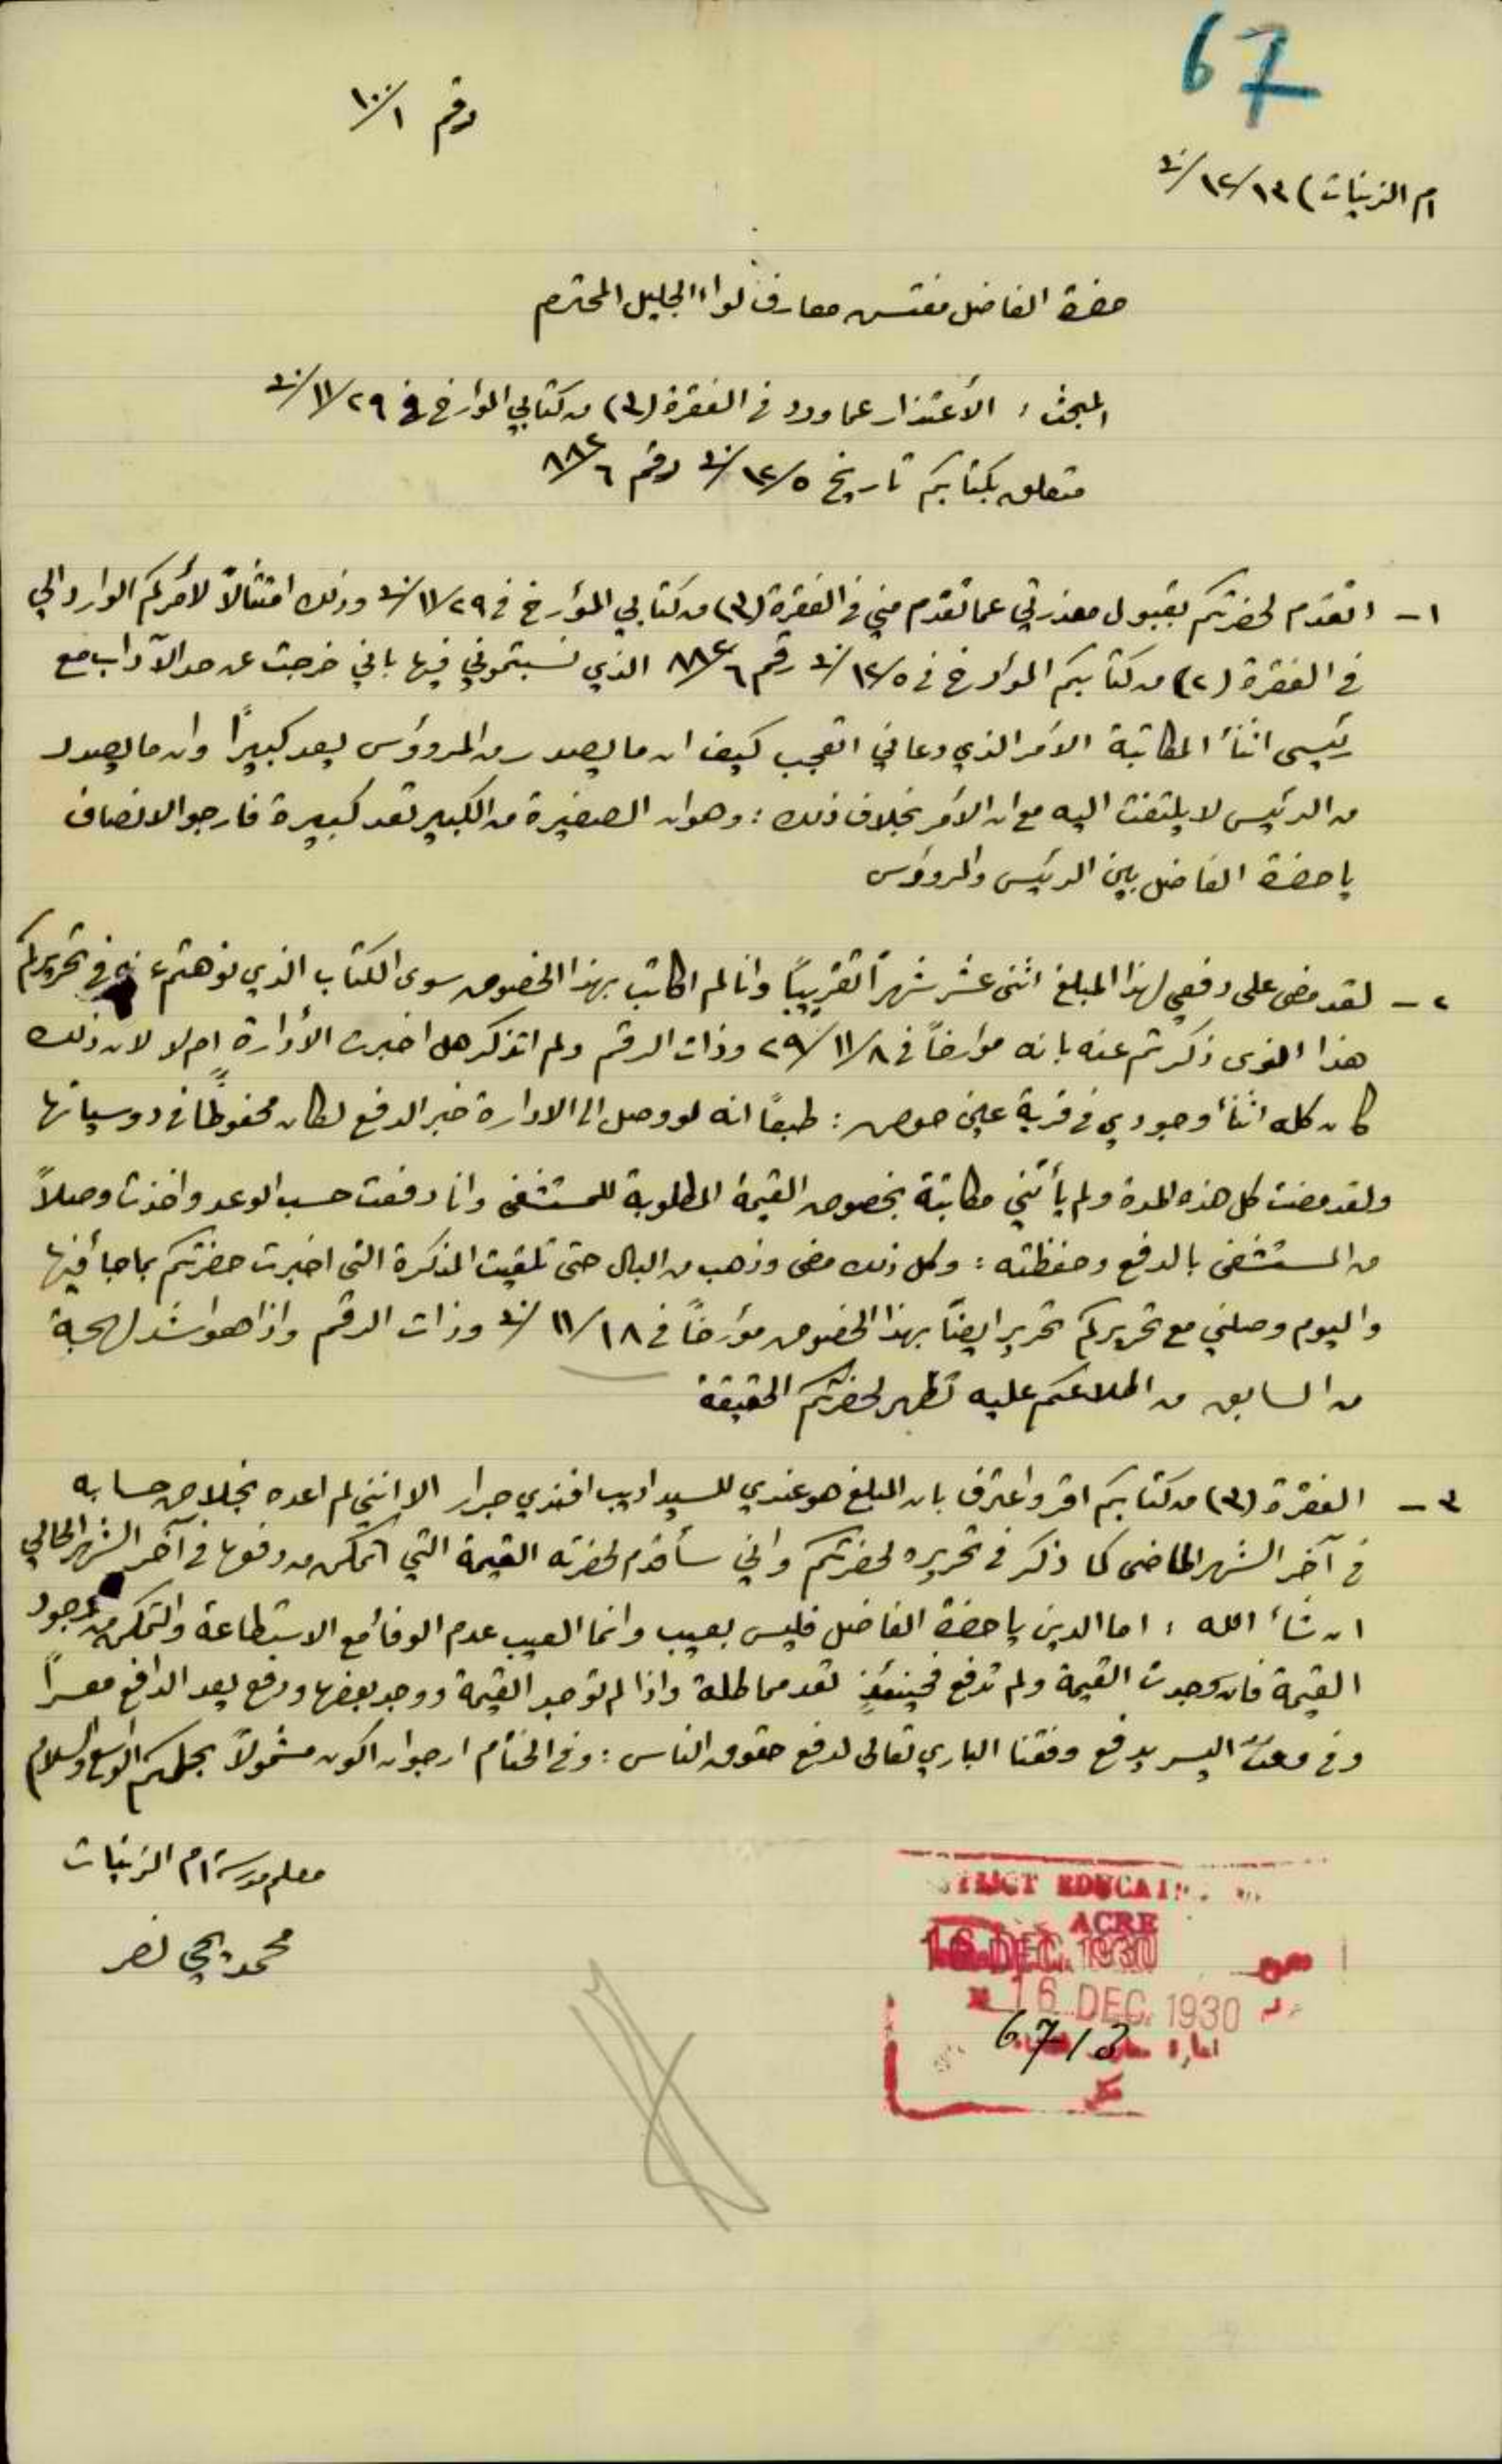 67
رقم ١٠٠/١
ام الزينات) ١٣/١٢/٣٠
حضرة الفاضل مفتش معارف لواء الجليل المحترم
المبحث، الأعتذار عما ورد في الفقرة (٣) من كتابي المؤارخ في ٢٩/١١/٣٠
متعلق بكتابكم تاريخ ٥/١٢/٣٠ رقم ٨٨٢/٦
١- اتقدم لحضرتكم بقبول معذرتي عما تقدم مني في الفقرة (٣) من كتابي المؤرخ في ٢٩/١١/٣٠ وذلك امتثالاً لأمركم الوارد الي
في الفقرة (٢) من كتابكم المؤارخ في ٥/١٢/٣٠ رقم ٨٨٢/٦ الذي نسبتموني فيها باني خرجت عن حد الآداب مع
رئيسي اثنأ المكاتبة الأمر الذي دعاني اتعجب كيف ان ما يصدر من المرؤوس يعد كبيراً وان ما يصدر
من الرئيس لا يلتفت اليه مع ان الأمر بخلاف ذلك : وهو ان الصغيرة من الكبير تعد كبيرة فارجو الانصاف
يا حضرة الفاضل بين الرئيس والمرؤوس
٢- لقد مضى على دفعي لهذا المبلغ اثنى عشر شهراً تقريباً وانا لم اكاتب بهذا الخصوص سوى الكتاب الذي نوهتم عنه في تحريركم
هذا الذي ذكرتم عنه بانه مؤارخاً في ٨/١١/٢٩ وذات الرقم ولم اتذكر هل اخبرت الأدارة ام لا لان ذلك
كان كله اثنأ وجودي في قرية عين حوض : طبعاً انه لو وصل الى الادارة خبر الدفع لكان محفوظاً في دوسياتها
ولقد مضت كل هذه المدة ولم يأتني مكاتبة بخصوص القيمة المطلوبة للمستشفى وانا دفعت حسب الوعد واخذت وصلاً
من المستشفى بالدفع وحفظته : وكل ذلك مضى وذهب من البال حتى تلقيت المذكرة التي اخبرت حضرتكم بما جأ فيها
واليوم وصلني مع تحريركم تحرير ايضاً بهذا الخصوص مؤرخاً في ١٨/١١/٣٠ وذات الرقم واذا هو اشد لهجة
من السابق من اطلاعكم عليه تظهر لحضرتكم الحقيقة
٣- الفقرة (٣) من كتابكم اقر واعترف بان المبلغ هو عندي للسيد اديب افندي جرار الا انني لم اعده بخلاص حسابه
في آخر الشهر الماضي كما ذكر في تحريره لحضرتكم واني سأقدم لحضرته القيمة التي اتمكن من دفعها في آخر الشهر الحالي
ان شأ الله ، اما الدين يا حضرة الفاضل فليس بعيب وانما العيب عدم الوفأ مع الاستطاعة والتمكن من وجود
القيمة فان وجدت القيمة ولم تدفع فحينئذٍ تعد مماطلة واذا لم توجد القيمة ووجد بعضها ودفع يعد الدافع معسراً
وفي وقت اليسر يدفع وفقنا الباري تعالى لدفع حقوق الناس : وفي الختام ارجو ان اكون مشمولاً بحلمكم الواسع والسلام
معلم مدرسة ام الزينات
محمد يحي نصر
ACRE
16 DEC. 1930
16 DEC. 1930
6713